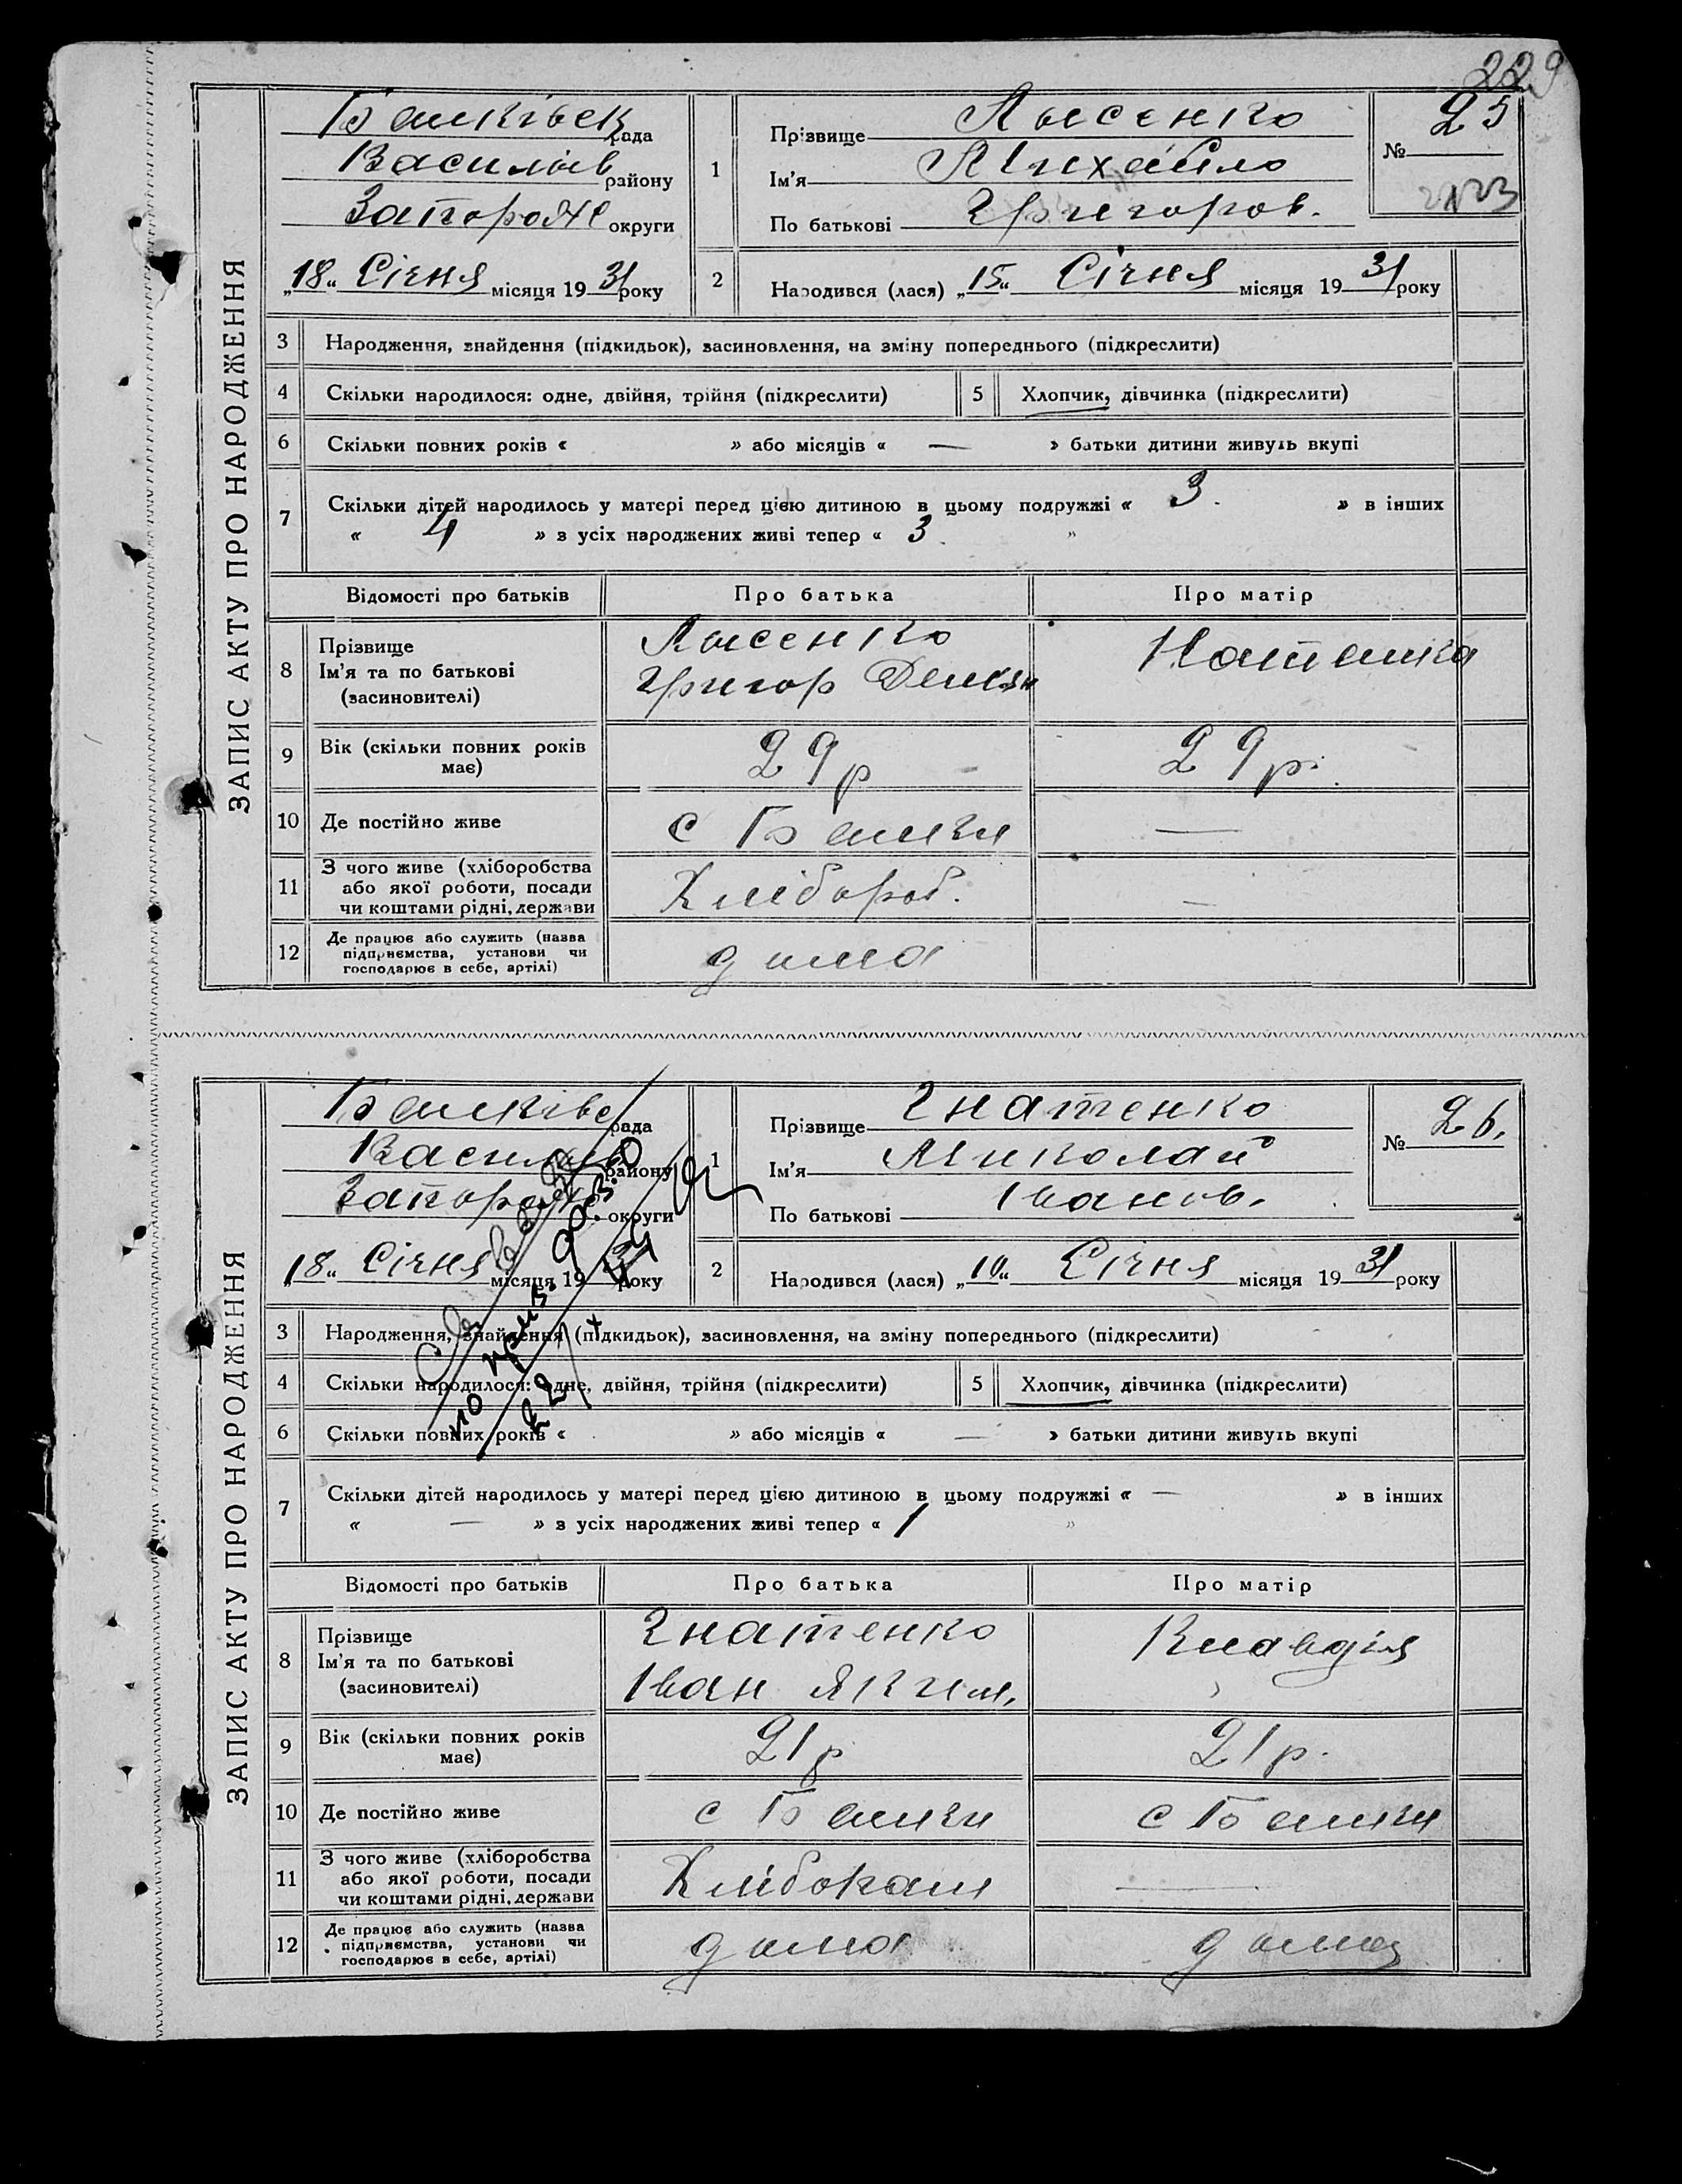 229
ЗАПИС АКТУ ПРО НАРОДЖЕННЯ
Балківськ рада
Василів району
Запорожс округи
„18“ Січня місяця 1931 року
1
Прізвище Лысенко
Ім’я Михайло
По батькові Григоров.
№ 25
2
Народився (лася) „15“ Січня місяця 1931 року
3 Народження, знайдення (підкидьок), васиновлення, на зміну попереднього (підкреслити)
4 Скільки народилося: одне, двійня, трійня (підкреслити)
5 Хлопчик, дівчинка (підкреслити)
6 Скільки повних років « » або місяців « — » батьки дитини живуть вкупі
7 Скільки дітей народилось у матері перед цією дитиною в цьому подружжі « 3. » в інших
« 4 » з усіх народжених живі тепер « 3 »
Відомості про батьків Про батька Про матір
8 Прізвище
Ім’я та по батькові
(засиновителі)
Лысенко
Григор Демян
Наталка
9 Вік (скільки повних років
має)
29 р
29 р.
10 Де постійно живе
с Балки
—
11 З чого живе (хліборобства
або якої роботи, посади
чи коштами рідні, держави
Хлібороб.
—
12 Де працює або служить (назва
підприємства, установи чи
господарює в себе, артілі)
дома
ЗАПИС АКТУ ПРО НАРОДЖЕННЯ
Балківс рада
Василів району
Запорожс округи
„18“ Січня місяця 1931 року
1
Прізвище Гнатенко
Ім’я Миколай
По батькові Іванов.
№ 26.
2
Народився (лася) „10“ Січня місяця 1931 року
3 Народження, знайдення (підкидьок), васиновлення, на зміну попереднього (підкреслити)
4 Скільки народилося: одне, двійня, трійня (підкреслити)
5 Хлопчик, дівчинка (підкреслити)
6 Скільки повних років « » або місяців « — » батьки дитини живуть вкупі
7 Скільки дітей народилось у матері перед цією дитиною в цьому подружжі « — » в інших
« — » з усіх народжених живі тепер « 1 »
Відомості про батьків Про батька Про матір
8 Прізвище
Ім’я та по батькові
(засиновителі)
Гнатенко
Іван Яким.
Клавдія
9 Вік (скільки повних років
має)
21 р
21 р.
10 Де постійно живе
с Балки
с Балки
11 З чого живе (хліборобства
або якої роботи, посади
чи коштами рідні, держави
—
12 Де працює або служить (назва
підприємства, установи чи
господарює в себе, артілі)
дома
дома